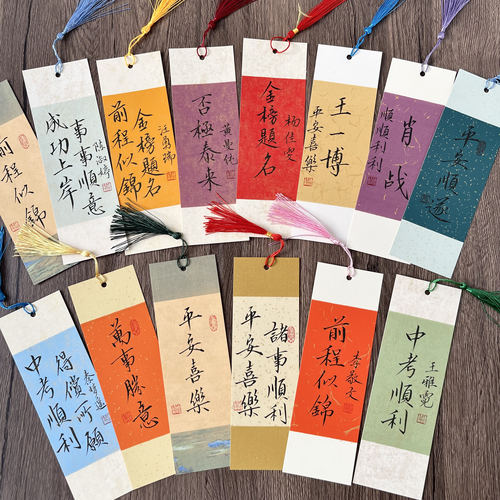 前程似錦
事事順意
成功上岸
金榜題名
前程似錦
否極泰來
金榜題名
杨佳雯
王一博
平安喜樂
肖战
順順利利
平安順遂
得償所願
中考順利
萬事勝意
平安喜樂
諸事順利
平安喜樂
前程似錦
李敬文
中考順利